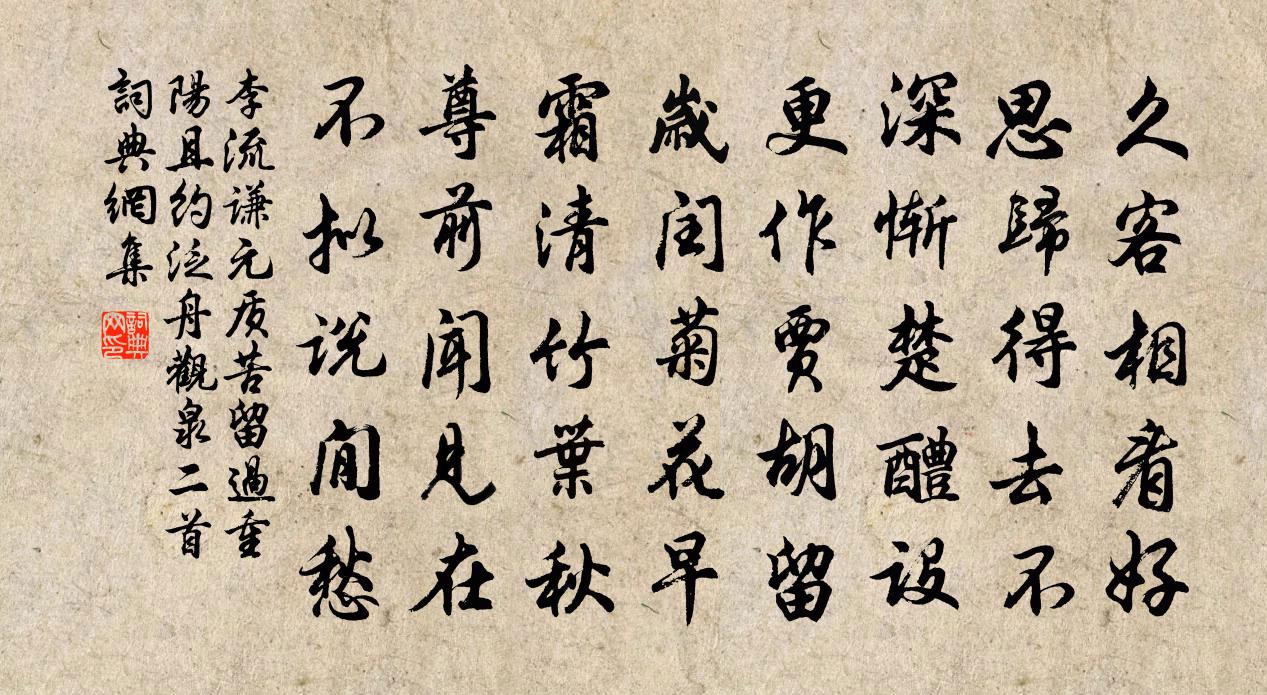 久客相看好
思歸得去不
深慚楚醴設
更作賈胡留
歲閏菊花早
霜清竹葉秋
尊前聞見在
不拟說閒愁
李流谦元质苦留過重
陽且約泛舟觀泉二首
詞典網集
詞典网印